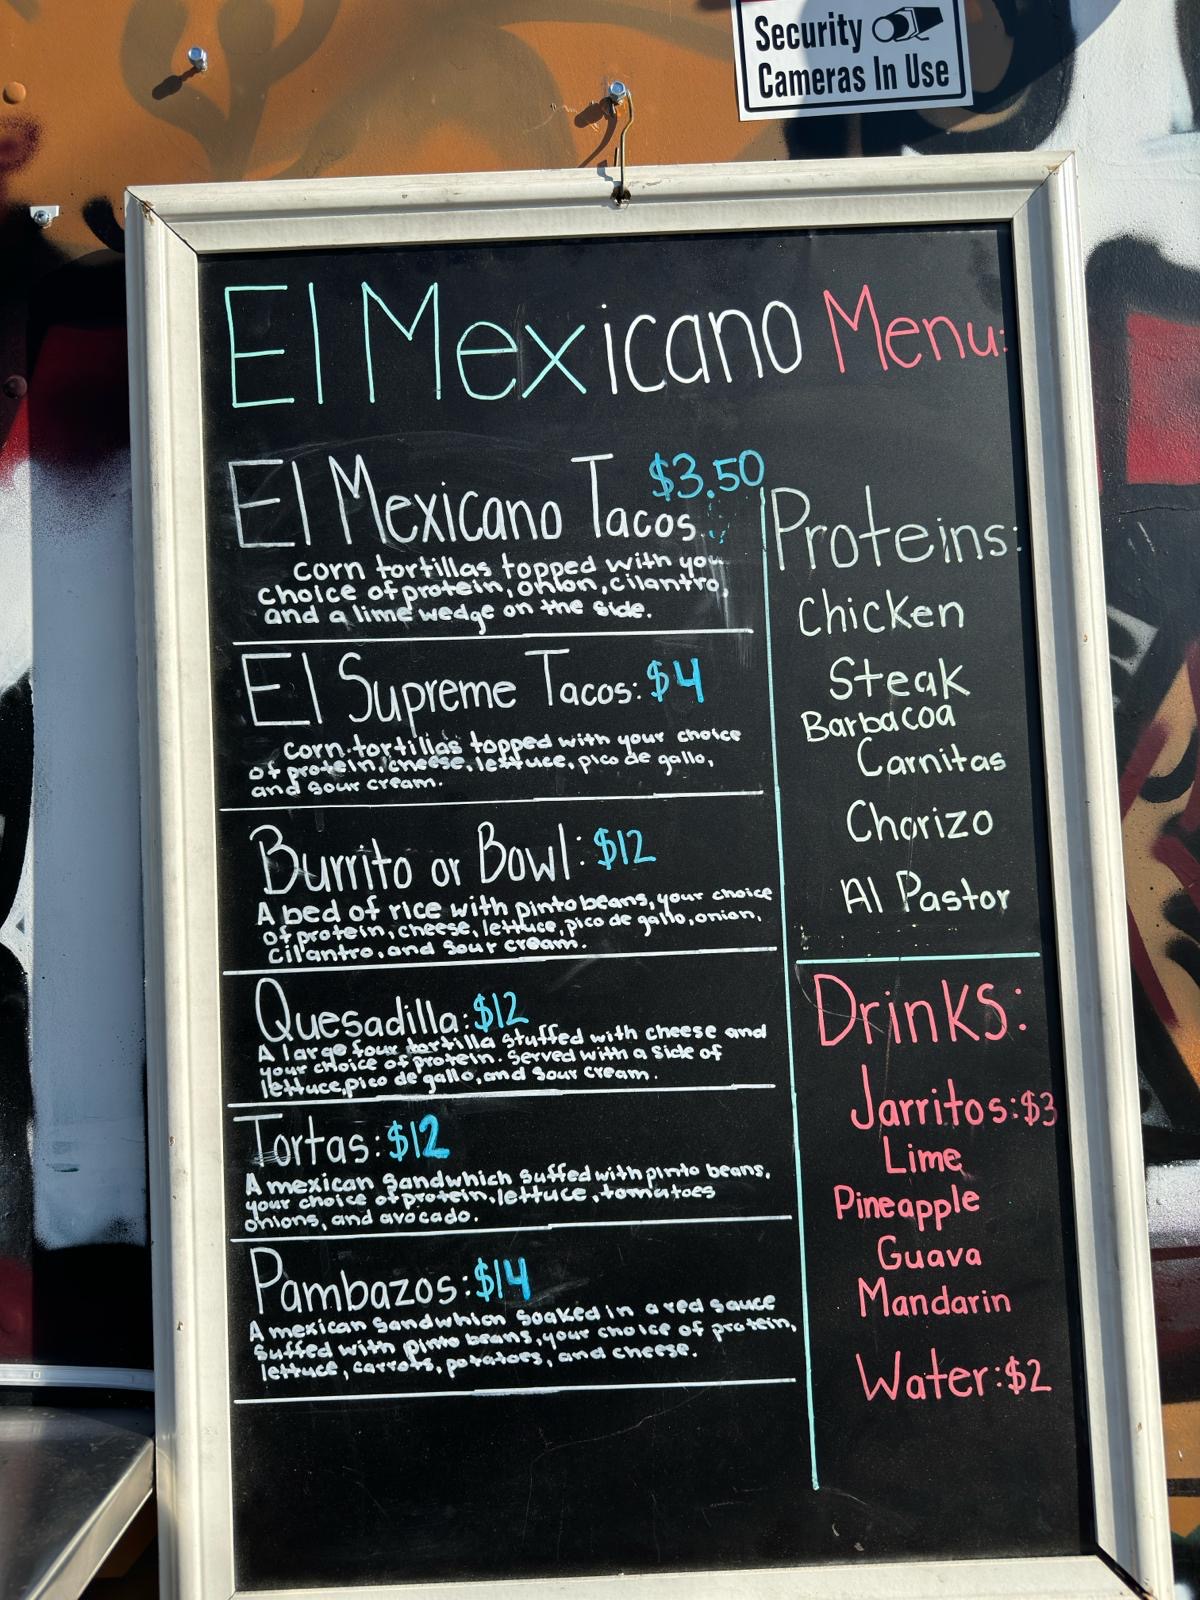 Security
Cameras In Use
El Mexicano Menu:
El Mexicano Tacos $3.50
corn tortillas topped with you
choice of protein, onion, cilantro,
and a lime wedge on the side.
El Supreme Tacos: $4
corn tortillas topped with your choice
of protein, cheese, lettuce, pico de gallo,
and sour cream.
Burrito or Bowl: $12
A bed of rice with pinto beans, your choice
of protein, cheese, lettuce, pico de gallo, onion,
cilantro, and sour cream.
Quesadilla: $12
A large four tortilla stuffed with cheese and
your choice of protein. Served with a side of
lettuce, pico de gallo, and sour cream.
Tortas: $12
A mexican sandwhich suffed with pinto beans,
your choice of protein, lettuce, tomatoes
onions, and avocado.
Pambazos: $14
A mexican sandwhich soaked in a red sauce
suffed with pinto beans, your choice of protein,
lettuce, carrots, potatoes, and cheese.
Proteins:
Chicken
Steak
Barbacoa
Carnitas
Chorizo
Al Pastor
Drinks:
Jarritos: $3
Lime
Pineapple
Guava
Mandarin
Water: $2